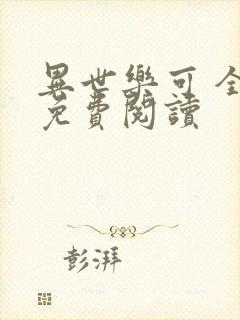 異世樂可 全
免費閱讀
彭湃